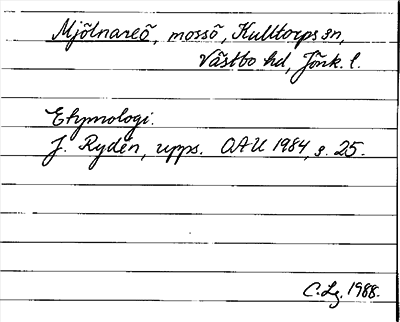 Mjölnareö, mossö, Kulltorps sn,
Västbo hd, Jönk. l.
Etymologi.
J. Rydén, upps. OAU 1984, s. 25.
C. Lg. 1988.